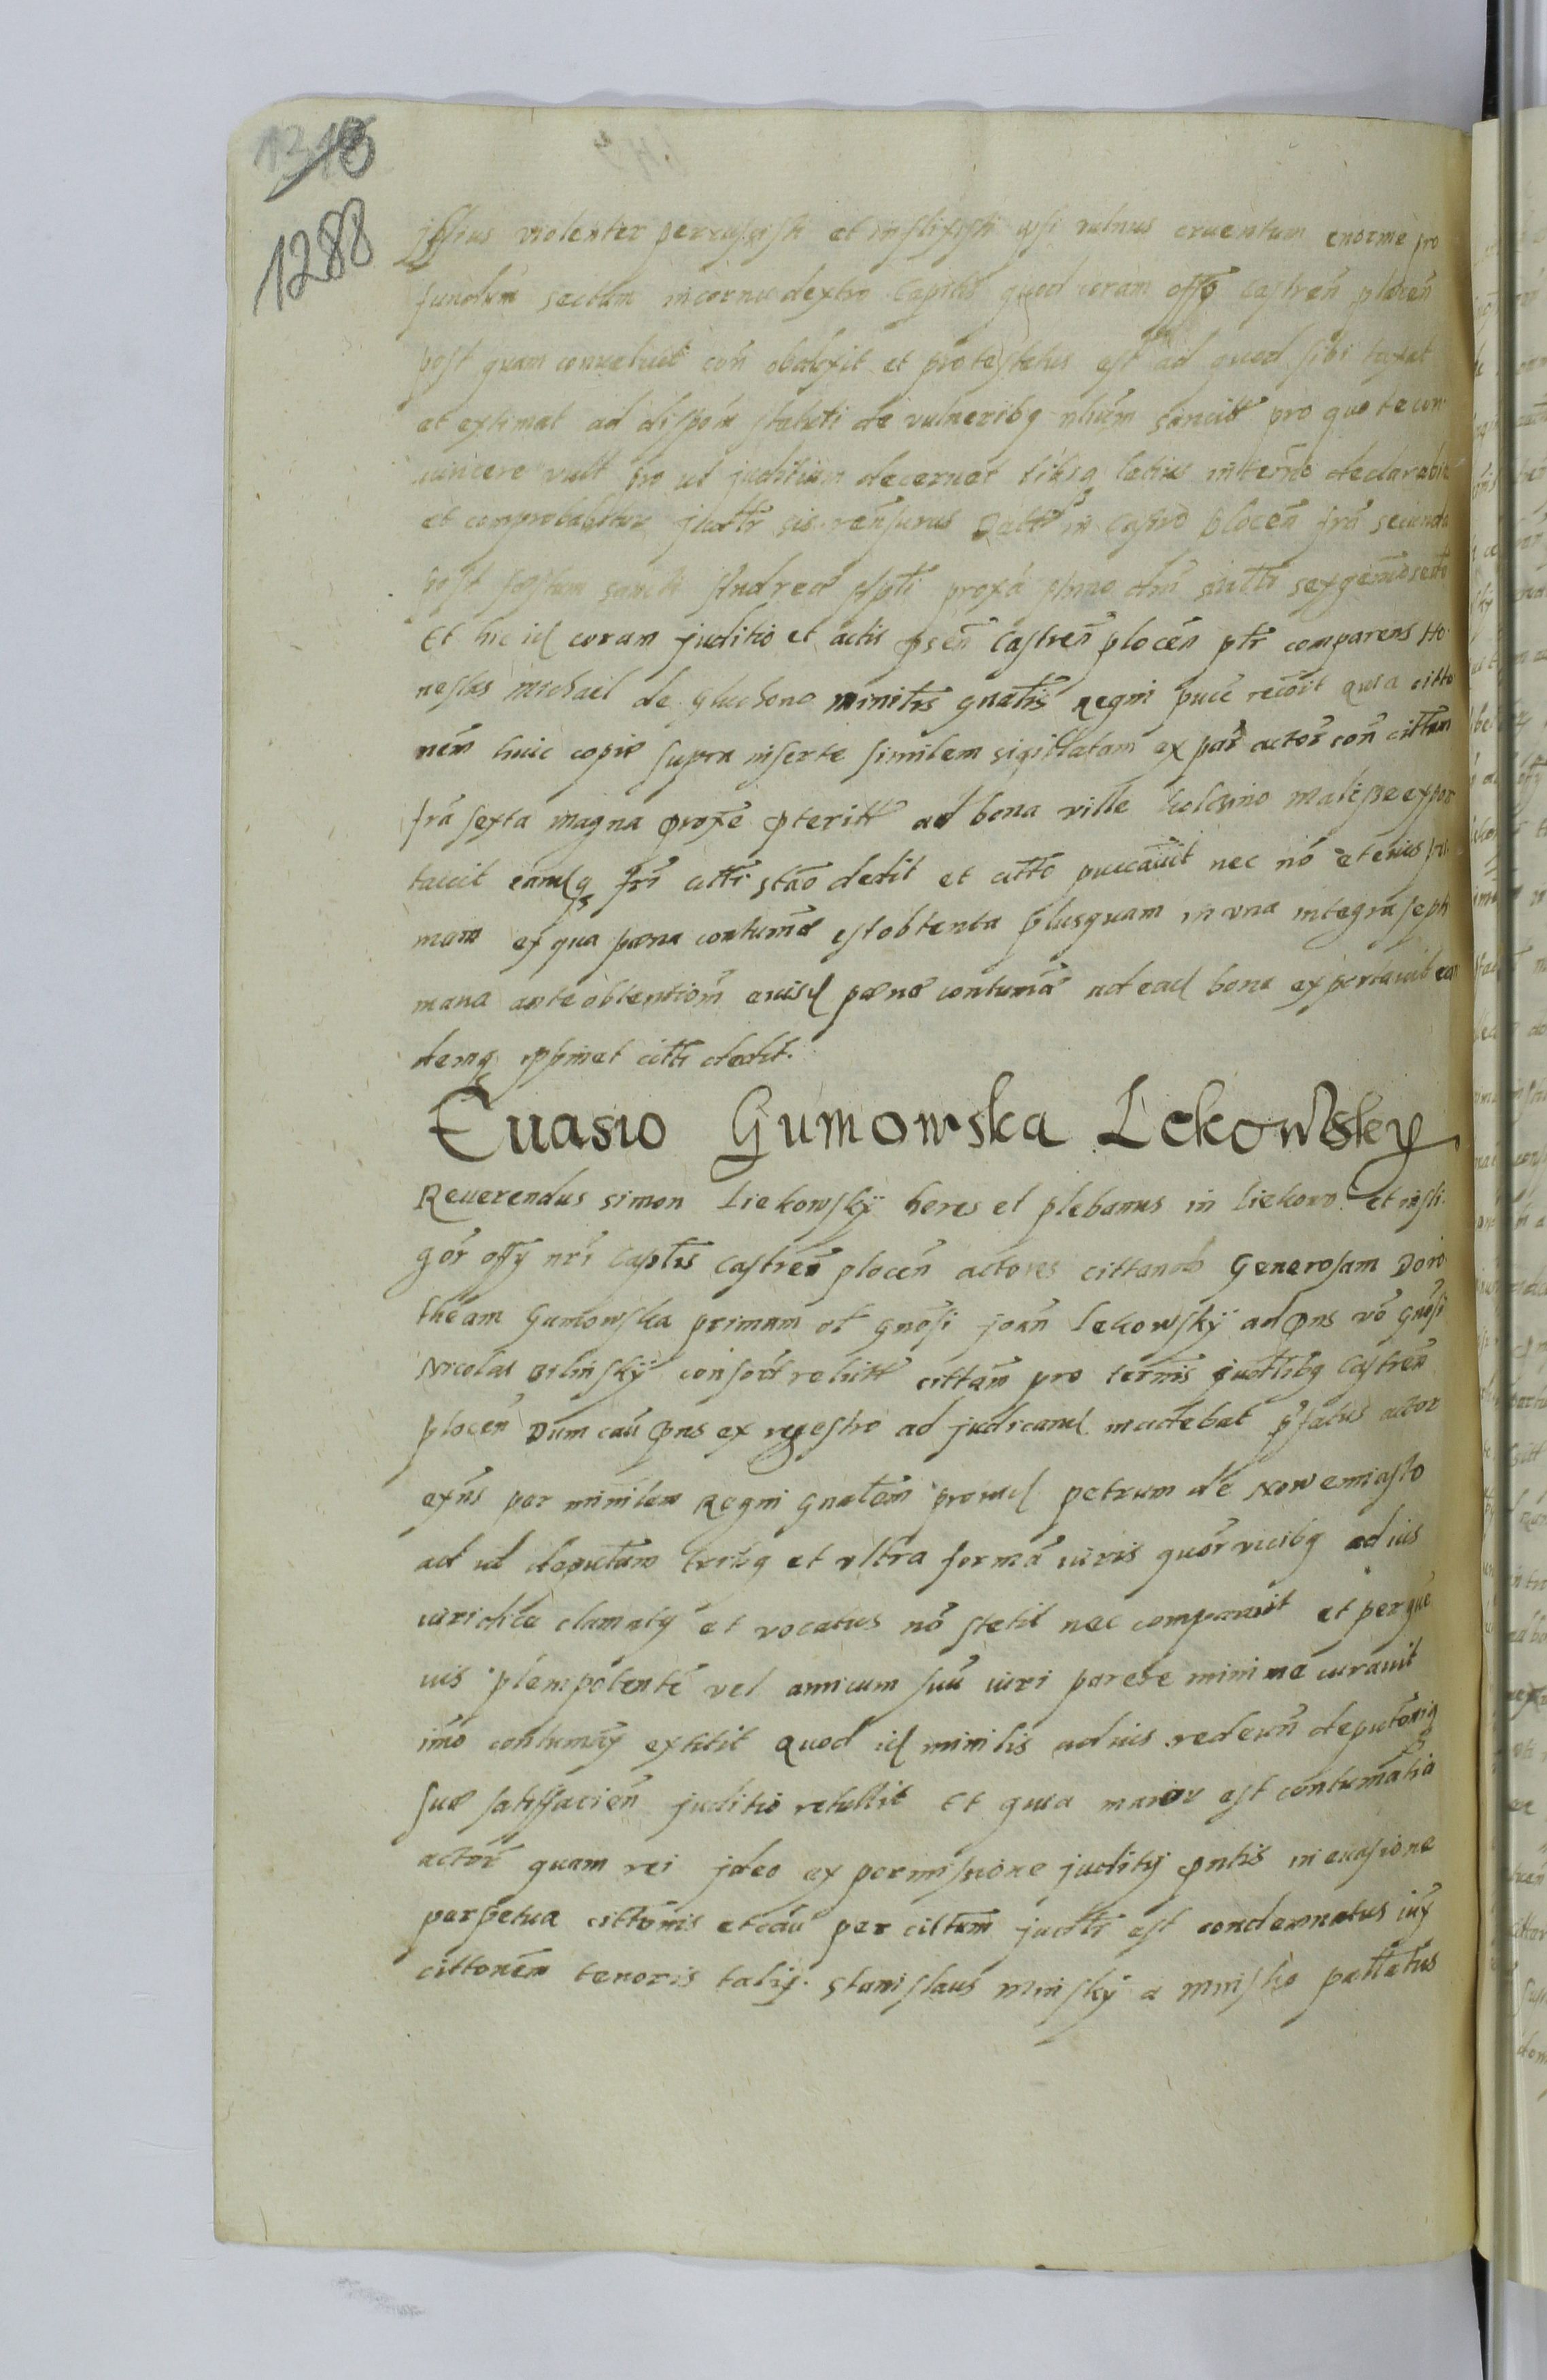 1318
1288
ipsius violenter percussisti et inflixisti ipsi vulnus cruentum enorme pro
fundum sectum in cornu dextro Capitis quod coram offo Castren plocen
post quam convaluit con obduxit et protestatus est ad quod sibi taxat
et extimat ad dispom statuti de vulneribq nhium sancitt pro quo te con
uincere vult pro ut juditium decernet tibiq latius in termo declarabit
et comprobabitur judtr sis rensurus Datt in Castro plocen fra secunda
post festum sancti Andreæ Apli proxa Anno dni millo sexgentmo secundo
Et hic id coram juditio et actis psen Castren plocen ptr comparens Ho
nestus Michael de Gluchowo minitis gnatis Regni puce recoit Quia citto
nem huic copie supra inserte similem sigillatam ex par actor con cittam
fra sexta magna proxe pteritt ad bona ville
tauit eamq fri citti stao dedit et citto puccauit nec no et eius pri
mam ex qua pœna contuma est obtenta plusquam in vna integra septi
mana ante obtentiom eiusd pœnæ contuma ad ead bona exportauit ean
demq ipsimet citti dedit.
Euasio Gumowska Lekowsky
Reuerendus Simon Liekowskÿ heres et plebanus in liekowo et insti
gor offy nri Captis Castren plocen actores cittando Generosam Doro
theam Gumowska primum ol gnosi joan Lekowskÿ ad pns vo gnosi
Nicolai Bilinskÿ consort relictt cittam pro ternis judtlibq Castren
plocen Dum cau pns ex regestro ad judicand incidebat pfatus actor
exns per minitem Regni Gnatem prouid petrum de Nowemiasto
ad id deputam tribq et vltra forma iuris quor vicibq ad ius
iuridice clamatq et vocatus no stetit nec comparuit et per que
uis plenipotente vel amicum suu iuri parere minime curauit
imo contumax extitit Quod id minitis ad ius redeun deputonig
suæ satisfacien juditio retullit Et quia maior est contumatia
actor quam rei jdeo ex permissione judity pntis in euasione
perpetua cittonis et cau per cittam judtr est condemnatus iux
cittonem tenoris talis. Stanislaus Minskÿ a Minsko pallatus